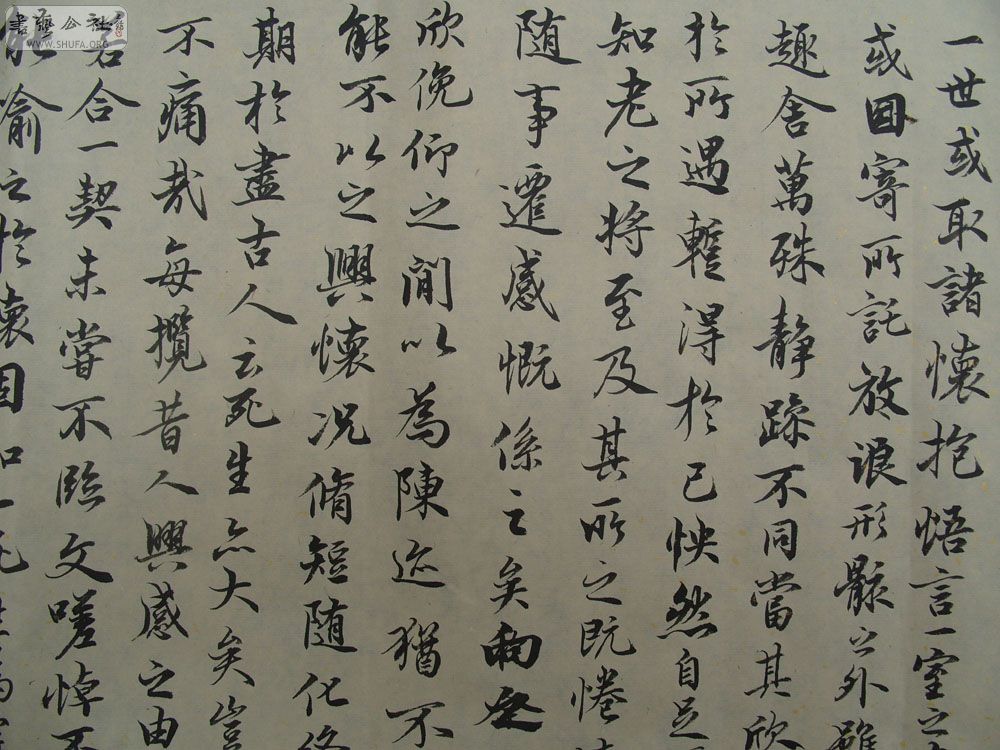 一世或取諸懷抱悟言一室之
或因寄所託放浪形骸之外雖
趣舍萬殊静躁不同當其欣
於所遇蹔得於己怏然自足
知老之將至及其所之既惓
随事遷感慨係之矣向之
欣俛仰之閒以為陳迹猶不
能不以之興懷况脩短随化終
期於盡古人云死生亦大矣豈
不痛哉每攬昔人興感之由
若合一契未嘗不臨文嗟悼不
能喻之於懷固知一死
書藝公社
WWW.SHUFA.ORG